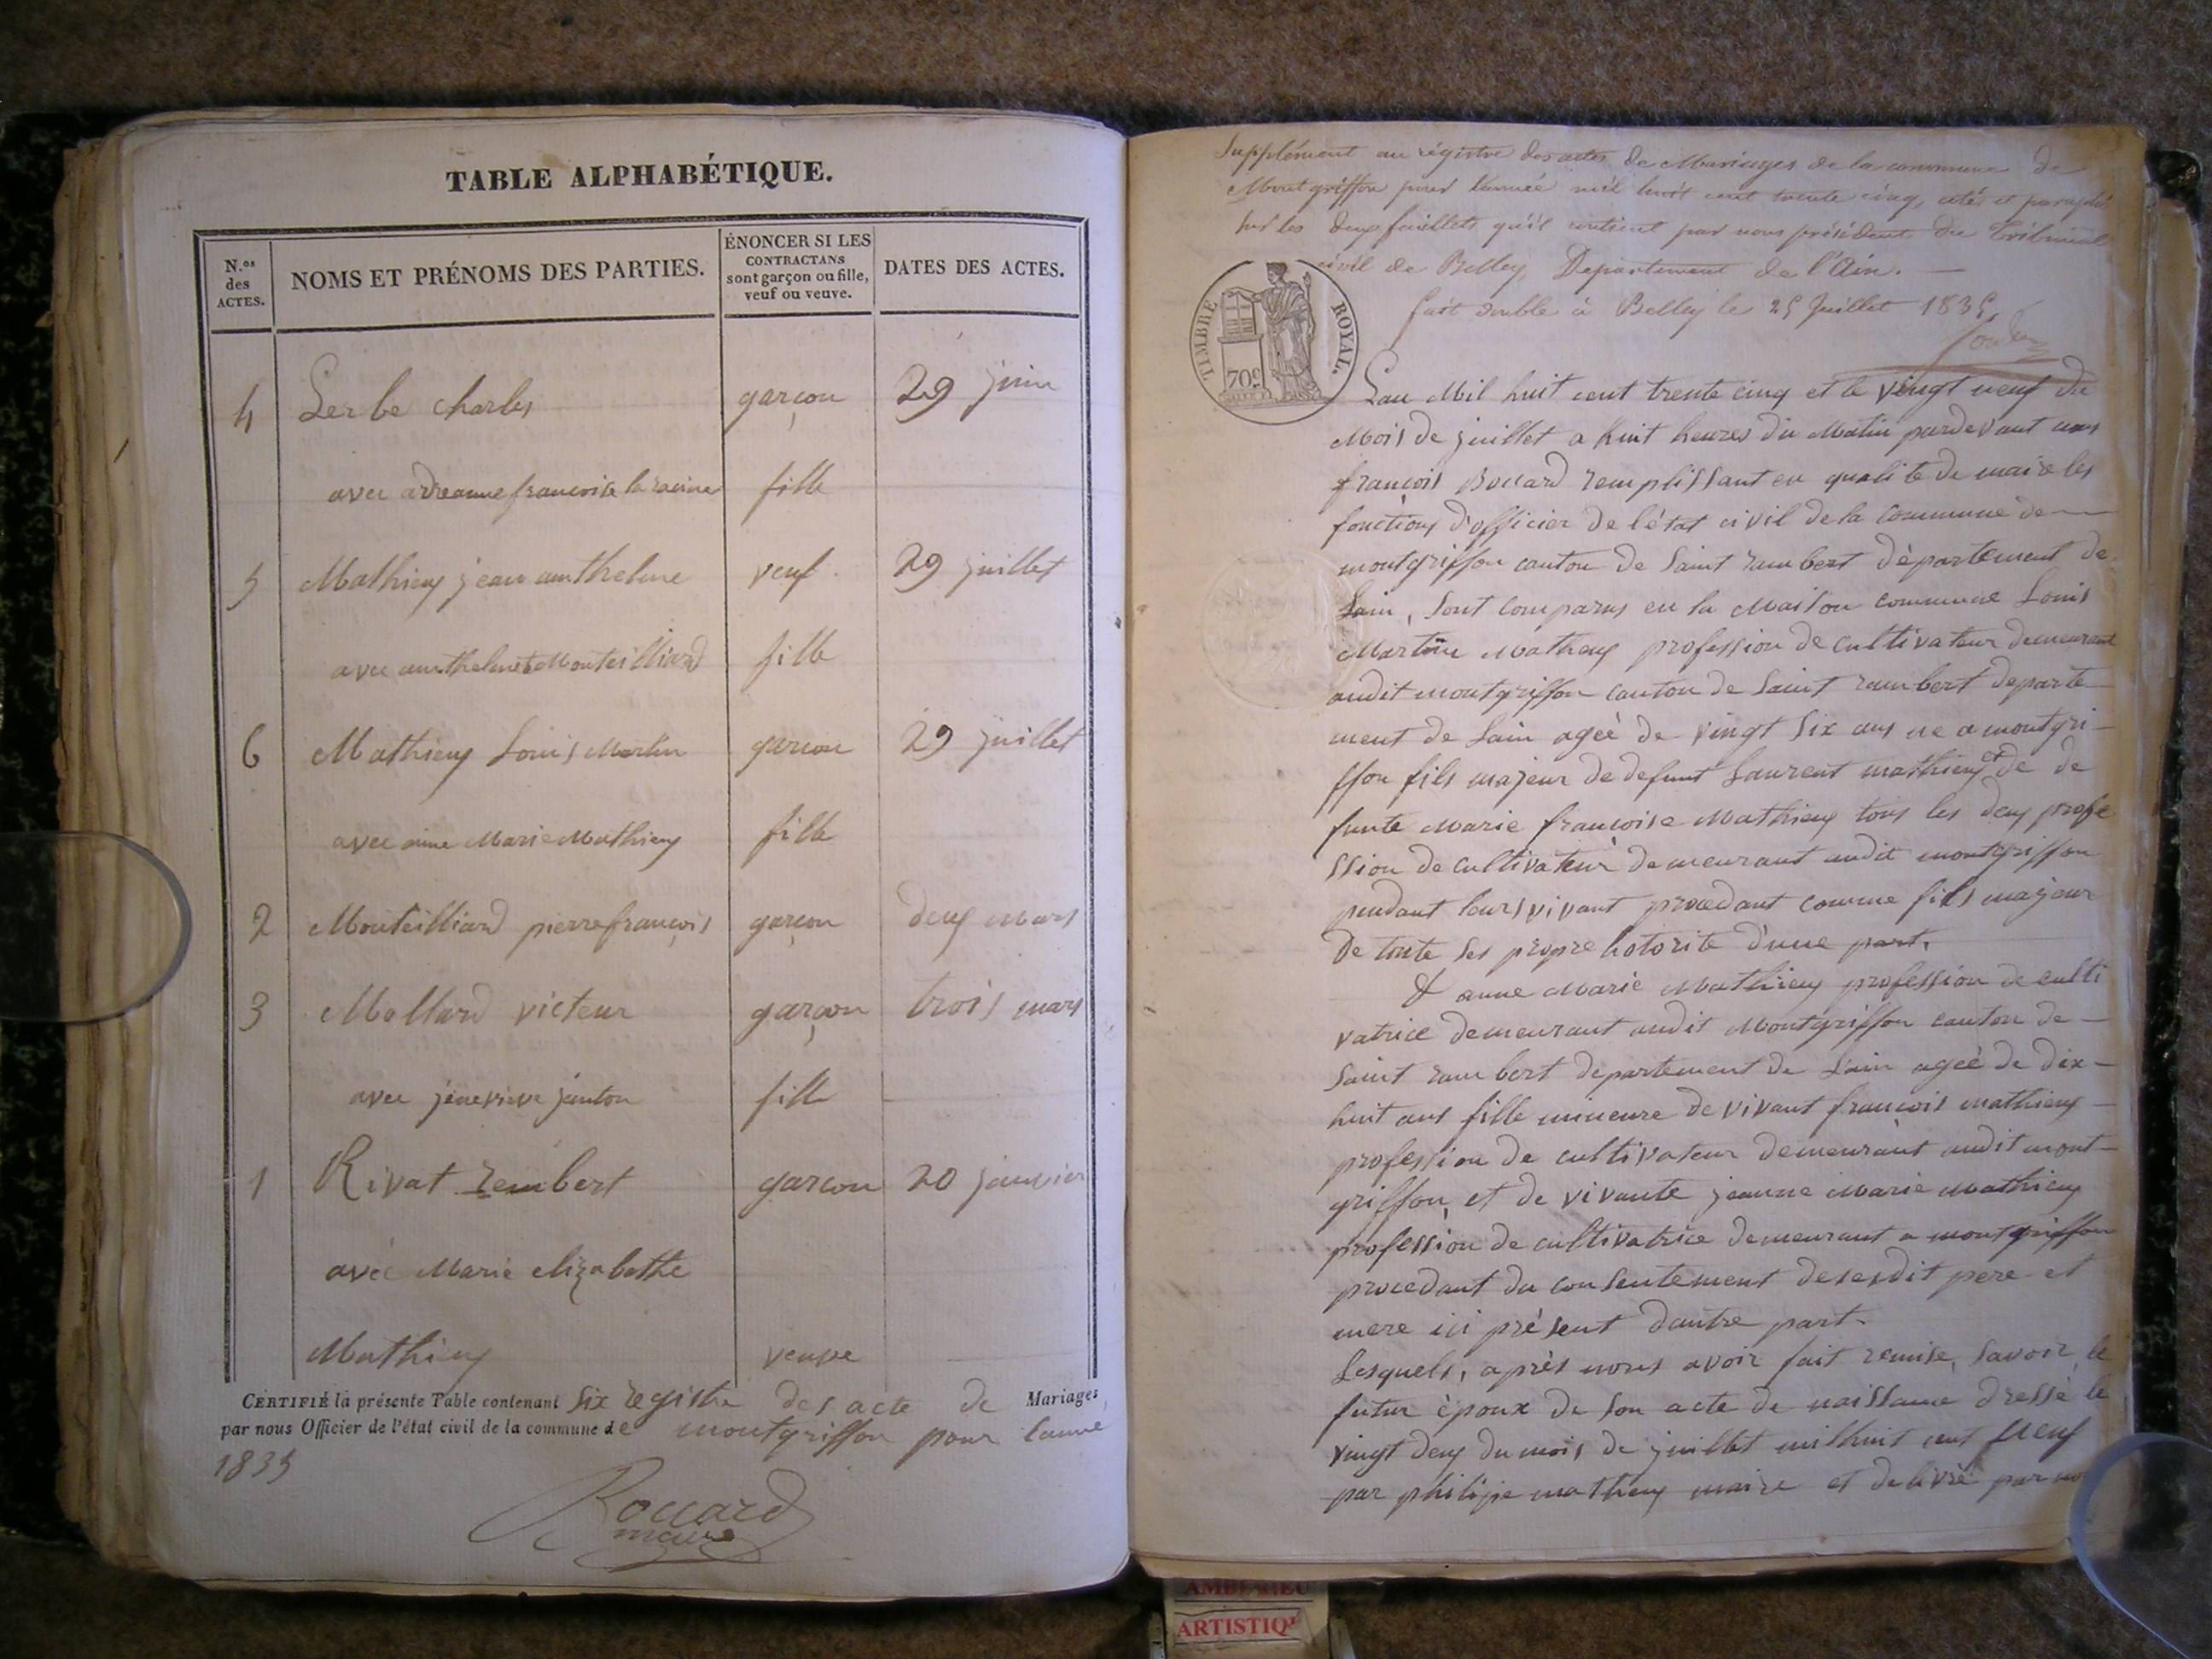 TABLE ALPHABÉTIQUE.
N.os des ACTES.
NOMS ET PRÉNOMS DES PARTIES.
ÉNONCER SI LES CONTRACTANS sont garçon ou fille, veuf ou veuve.
DATES DES ACTES.
4 Lerbe charles garçon 29 juin
avec francoise fille
5 Mathieu jean anthelme veuf 29 juillet
avec anthelme Monteilliard fille
6 Mathieu Louis Martin garcon 29 juillet
avec anne Marie Mathieu fille
2 Monteilliard pierre françois garçon deux Mars
3 Mollard victeur garçon trois mars
avec jenevieve janton fille
1 Rivat rembert garcon 20 janvier
avec Marie elizabethe
Mathieu veuve
CERTIFIÉ la présente Table contenant six registre des acte de Mariages
par nous Officier de l'état civil de la commune de montgriffon pour lanne
1835
Boccard
maire
Supplément au régistre des actes de Mariages de la commune de
Montgriffon pour l'année mil huit cent trente cinq, coté et paraphé
sur les deux feuillets qu'il contient par nous président du Tribunal
civil de Belley, Département de l'Ain.
fait double à Belley le 25 Juillet 1835
TIMBRE ROYAL.
70c
Lan Mil huit cent trente cinq et le vingt neuf du
Mois de juillet a huit heures du Matin pardevant nous
françois Boccard remplissant en qualite de maire les
fonctions d'officier de l'état civil de la commune de
montgriffon canton de saint rambert département de
Lain, sont comparus en la Maison commune Louis
Martin Mathieu profession de cultivateur demeurant
audit montgriffon canton de saint rambert departe
ment de Lain ageé de vingt six ans ne a montgri-
ffon fils majeur de defunt Laurent mathieu et de de
funte Marie françoise Mathieu tous les deux profe
ssion de cultivateur demeurant audit montgriffon
pendant leurs vivant procedant comme fils majeur
de toute ses propre hotorite d'une part.
& anne Marie Mathieu profession de culti
vatrice demeurant audit Montgriffon canton de -
saint rambert departement de Lain ageé de dix -
huit ans fille mineure de vivant françois mathieu -
profession de cultivateur demeurant audit mont-
griffon, et de vivante jeanne Marie Mathieu
profession de cultivatrice demeurant a montgriffon
procedant du consentement desesdit pere et
mere ici présent dautre part.
Lesquels, après nous avoir fait remise, savoir, le
futur époux de son acte de naissance dressé le
vingt deux du mois de juillet mil huit cent neuf
par philipe mathieu maire et delivré par nous
AMBERIEU
ARTISTIQU